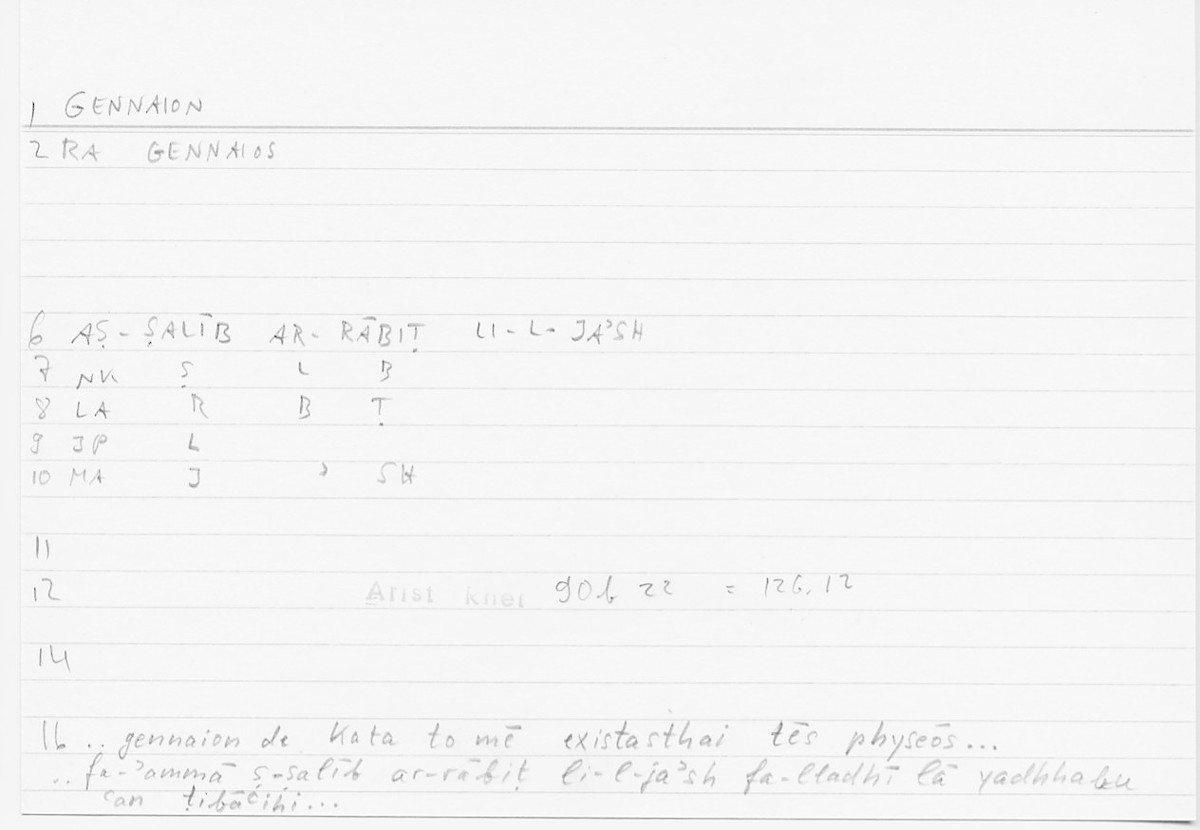 1 GENNAION
2 RA GENNAIOS
6 AṢ-ṢALĪB AR-RĀBIṬ LI-L-JAʾSH
7 NK Ṣ L B
8 LA R B Ṭ
9 JP L
10 MA J ʾ SH
11
12 Arist rhet 90b 22 = 126,12
14
16 .. gennaion de kata to mē existasthai tēs physeōs...
.. fa-ʾammā ṣ-ṣalīb ar-rābiṭ li-l-jaʾsh fa-lladhī lā yadhhabu
ʿan ṭibāʿihi...